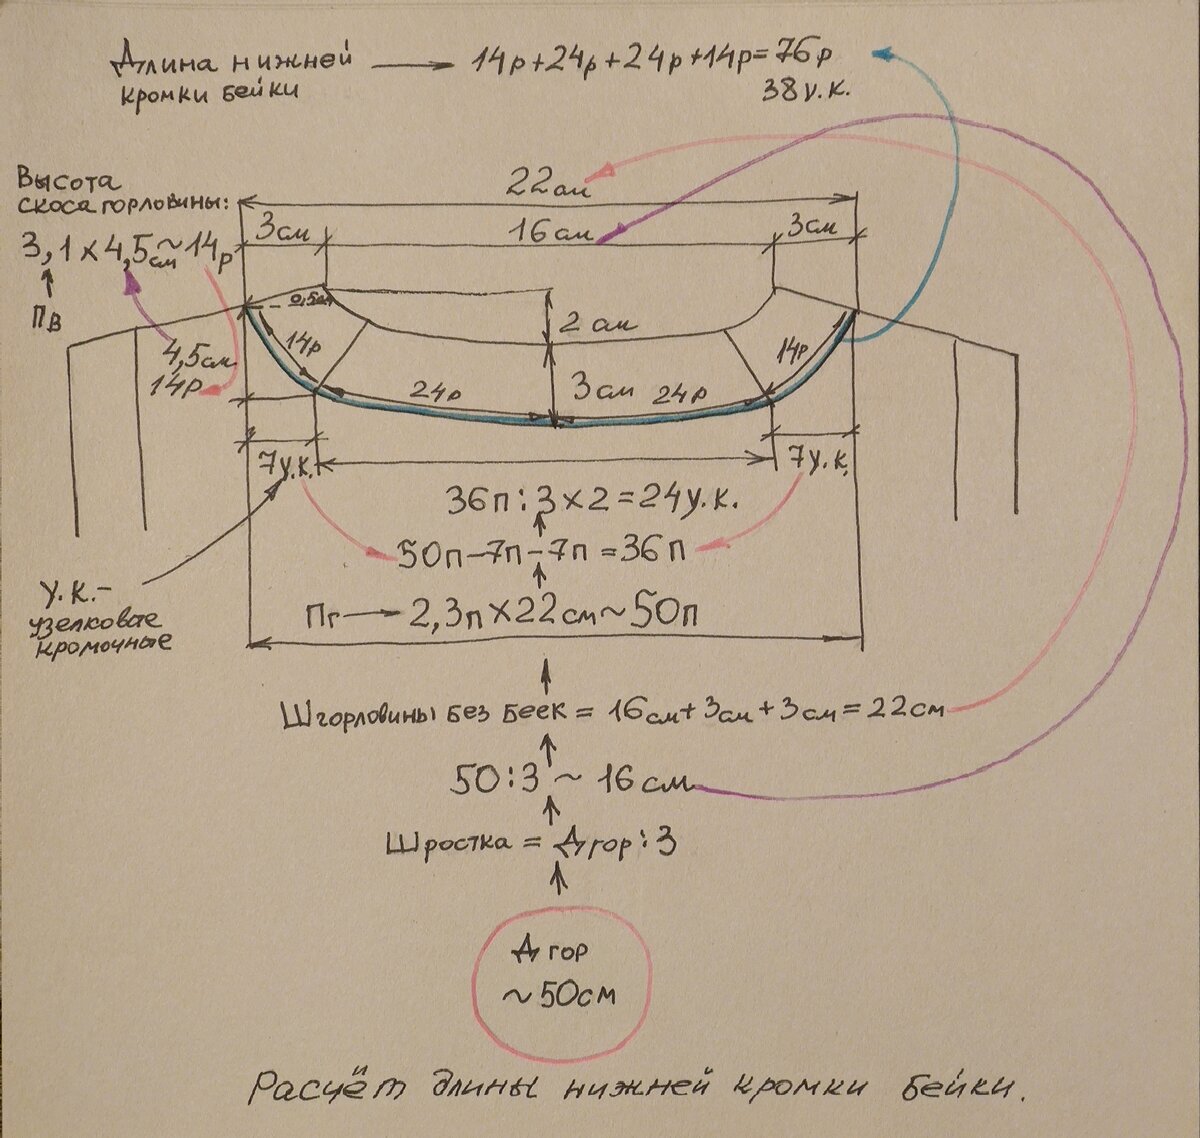 Длина нижней → 14р+24р+24р+14р=76р
кромки бейки
38 у.к.
Высота
скоса горловины:
3,1 x 4,5см ~ 14р
Пв
4,5см
14р
22см
3см
16см
3см
0,5см
2см
3см
14р
24р
24р
14р
7у.к.
7у.к.
36п:3x2=24у.к.
50п-7п-7п=36п
Пг → 2,3п x 22см ~ 50п
у.к.-
узелковые
кромочные
Шгорловины без беек = 16см+3см+3см=22см
50:3 ~ 16см
Шростка = Дгор:3
Дгор
~50см
Расчёт длины нижней кромки бейки.